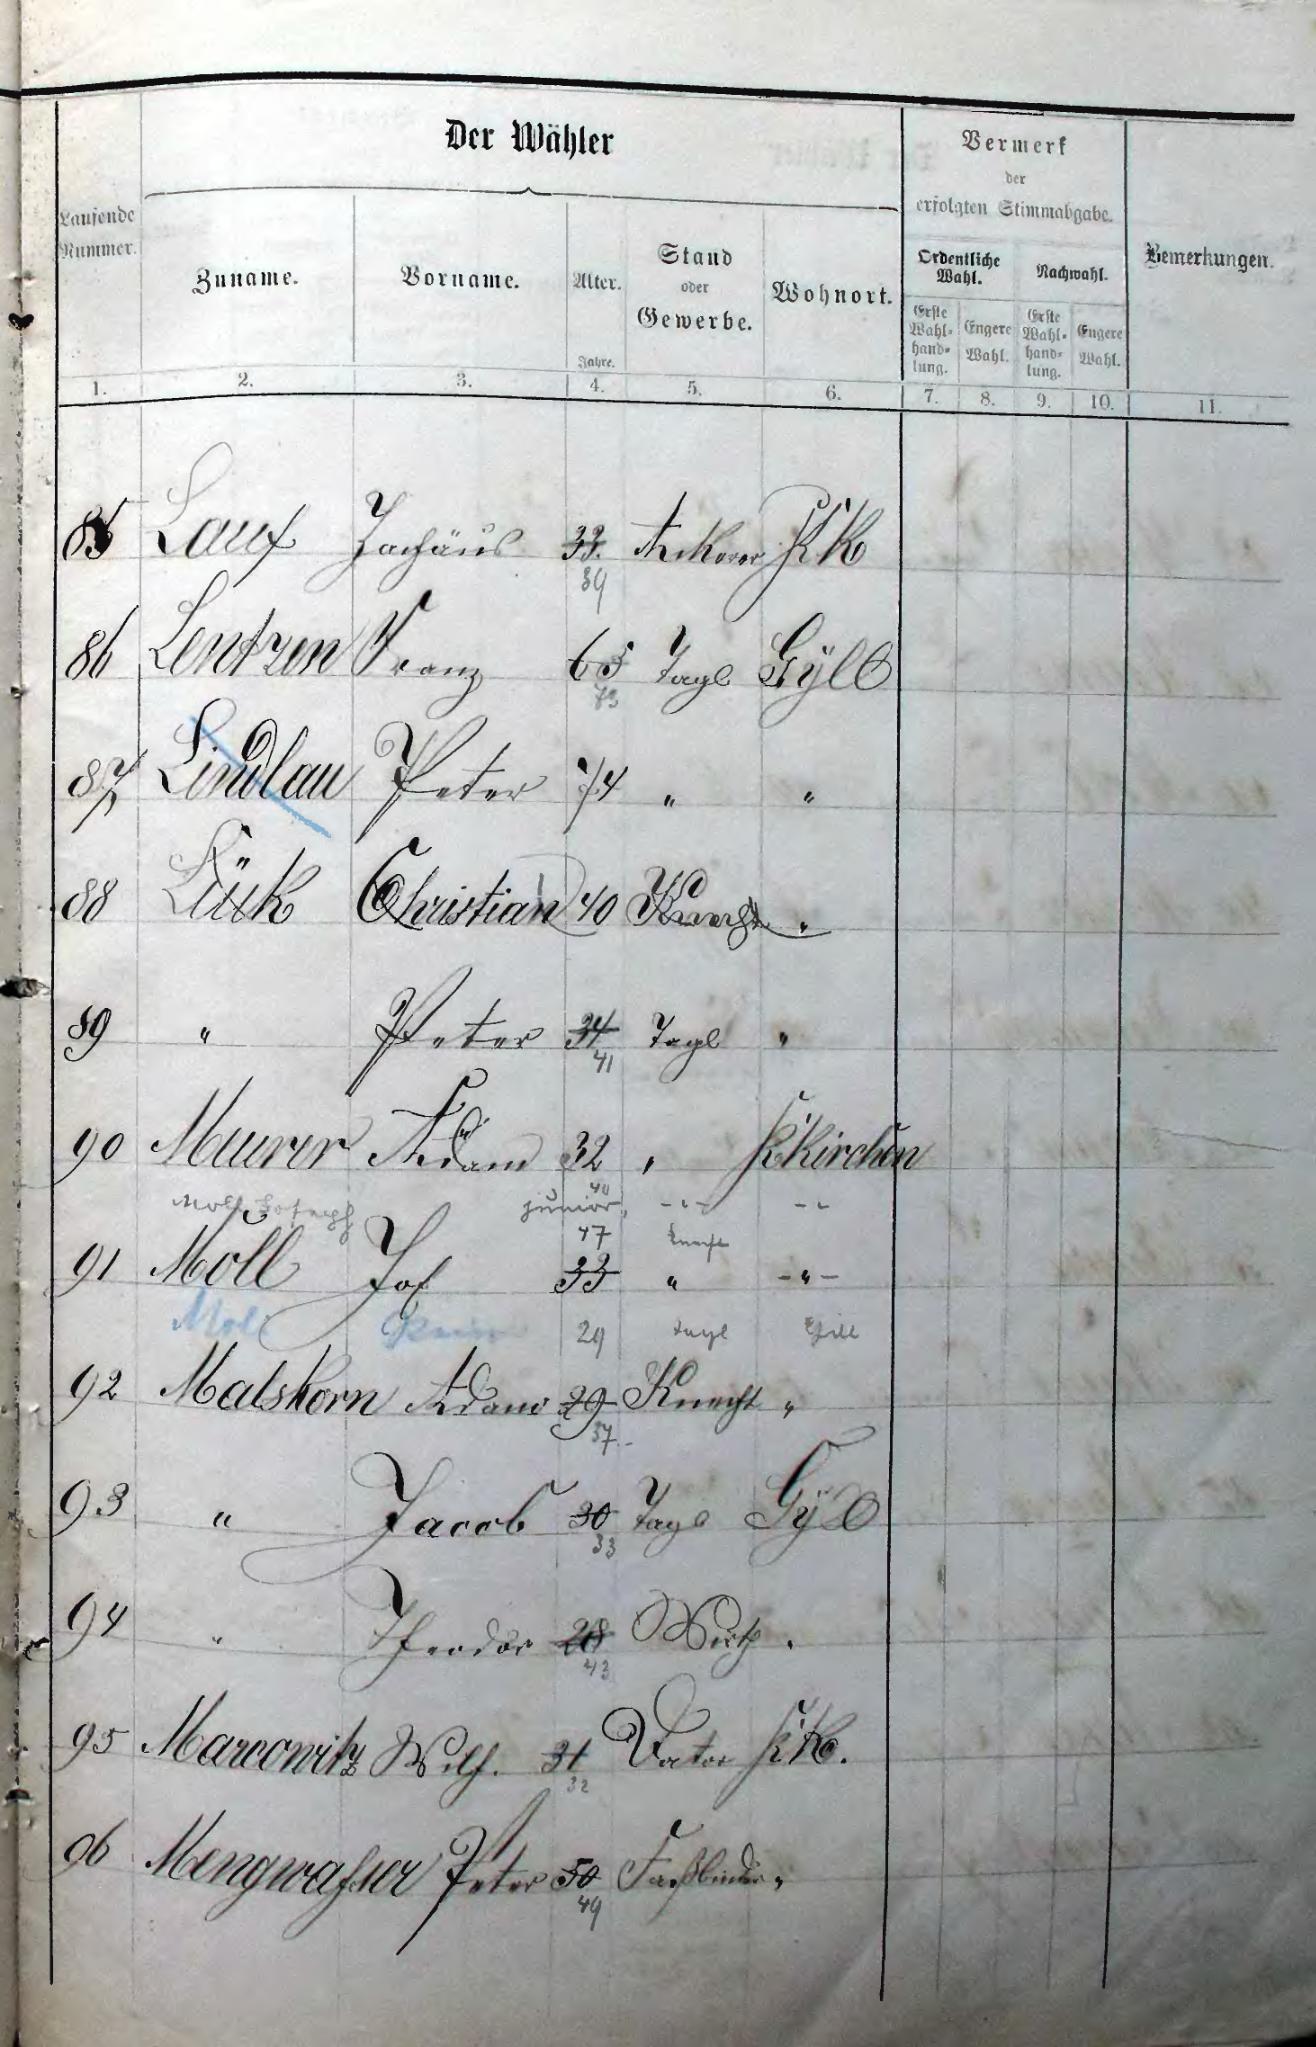 Der Wähler
Vermerk
der
erfolgten Stimmabgabe.
Laufende
Nummer.
Zuname.
Vorname.
Alter.
Jahre.
Stand
oder
Gewerbe.
Wohnort.
Ordentliche
Wahl.
Nachwahl.
Erste
Wahl-
hand-
lung.
Engere
Wahl.
Erste
Wahl-
hand-
lung.
Engere
Wahl.
Bemerkungen.
1. 2. 3. 4. 5. 6. 7. 8. 9. 10. 11.
85 Lauf Zachäus 33. Ackerer KK
39
86 Lentzen Franz 65 Tagl Gyll
73
87 Lindlau Peter 74 " "
88 Lück Christian 40 Knecht "
89 " Peter 34 Tagl "
41
90 Meurer Adam 32 " Kkirchen
40
Moll Joseph junior, -"- -"-
47 Knecht
91 Moll Jos 33 " -"-
Moll 29 Tagl Gyll
92 Malskorn Adam 29 Knecht "
37
93 " Jacob 30 Tagl Gyll
33
94 " Theodor 28 Wirth "
43
95 Marcowitz Wilh. 31 KK.
32
96 Mengwasser Peter 50 Faßbinder "
49